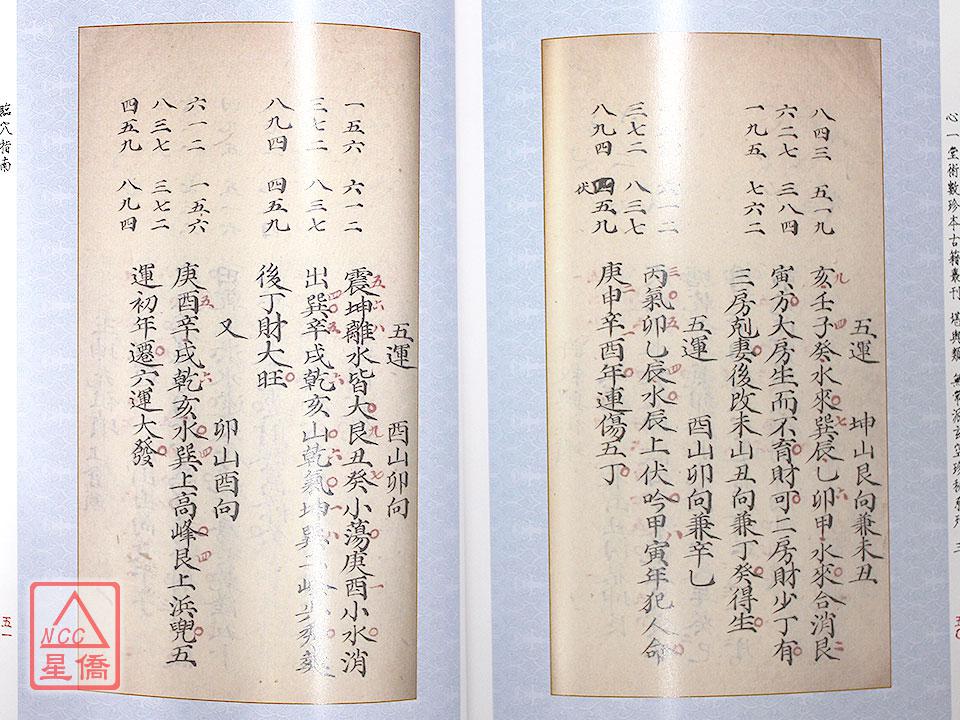 心一堂術數珍本古籍叢刊 堪輿類
五〇
五運 坤山艮向兼未丑
八四三 五一九 亥壬子癸水來巽辰乙卯甲水來合消艮
六二七 三八四 寅方大房生而不育財可二房財少丁有
一九五 七六二 三房剋妻後改未山丑向兼丁癸得生
五運 酉山卯向兼辛乙
六一二 丙氣卯乙辰水辰上伏吟甲寅年犯人命
三七二 八三七
八九四 伏 四五九 庚申辛酉年連傷五丁
五運 酉山卯向
一五六 六一二 震坤離水皆大艮丑癸小蕩庚酉小水消
三七二 八三七 出巽辛戌乾亥山乾氣坤巽二峰
八九四 四五九 後丁財大旺
又 卯山酉向
六一二 一五六 庚酉辛戌乾亥水巽上高峰艮上浜兜五
八三七 三七二
四五九 八九四 運初年遷六運大發
臨穴指南
五一
NCC
星僑